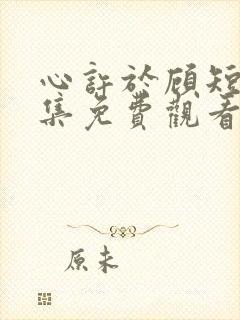 心許於顧短
集免費觀看
原未